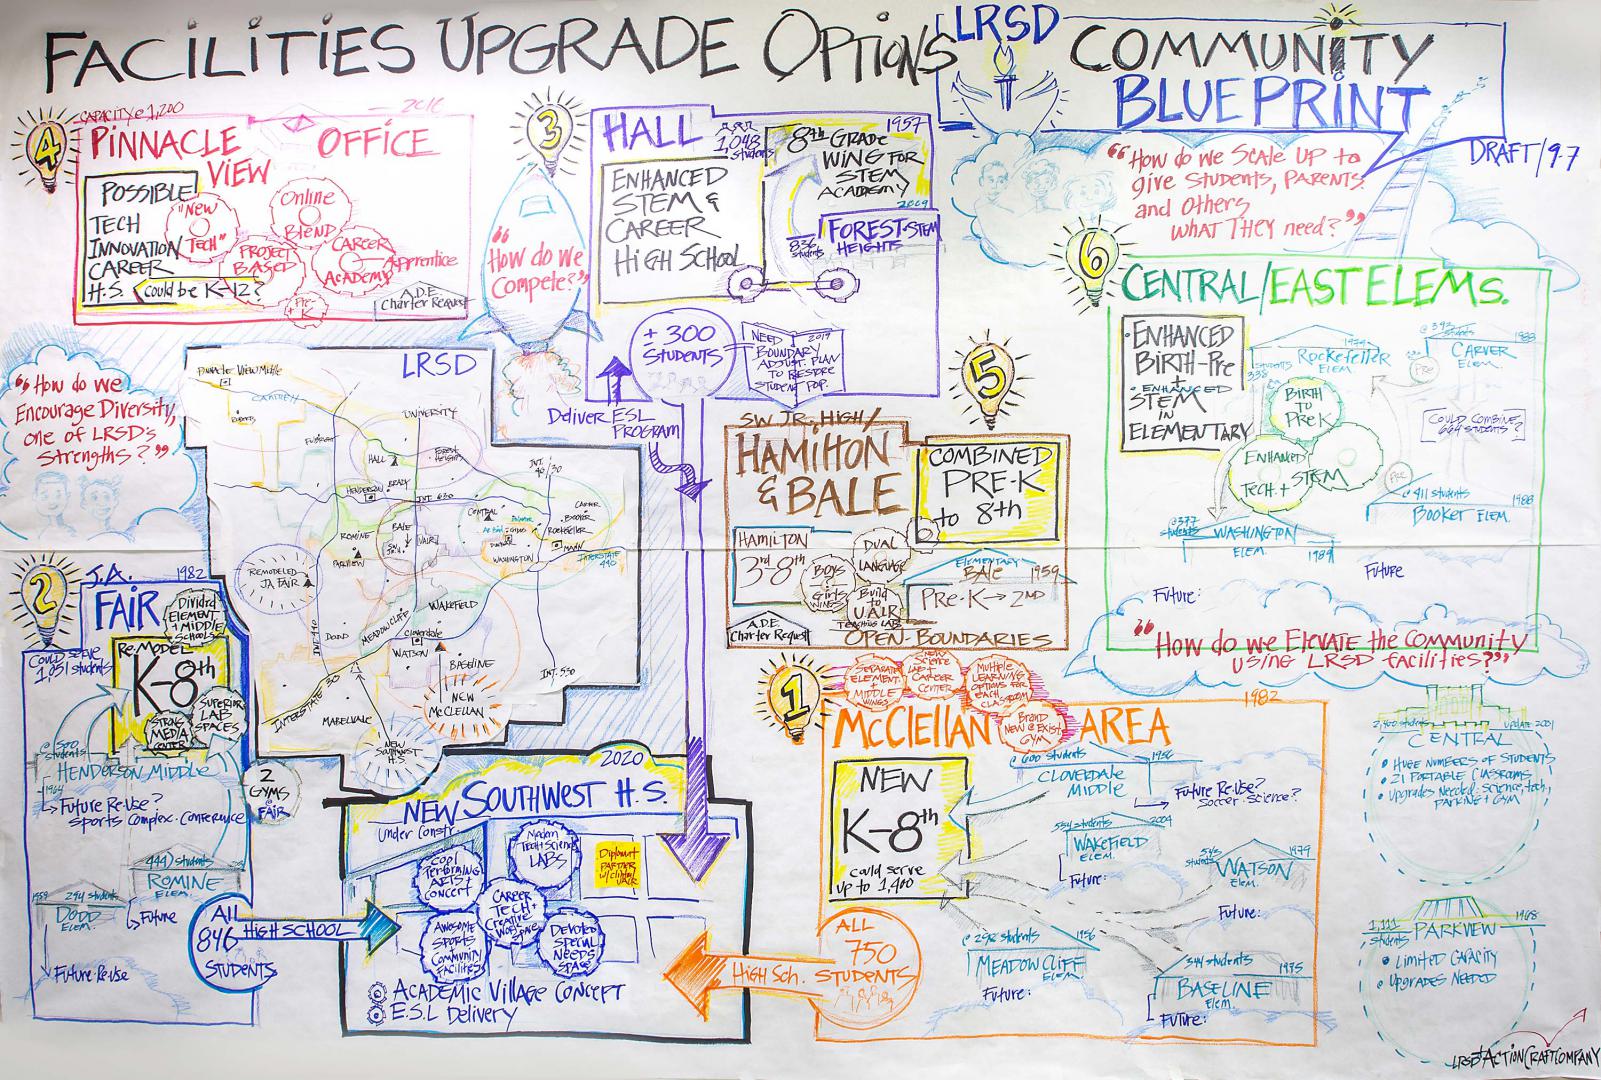 FACILITIES UPGRADE OPTIONS
LRSD
COMMUNITY
BLUEPRINT
DRAFT/9.7
"How do we Scale up to
give Students, Parents
and Others
what They need?"
4
CAPACITY @ 1,200
2016
PINNACLE
VIEW
OFFICE
POSSIBLE
TECH
INNOVATION
CAREER
H.S.
Could be K-12?
"New
Tech"
Online
Blend
Project
Based
Career
Academy
Apprentice
Pre-
K
A.D.E.
Charter Request
3
"How do we
Compete?"
HALL
1,048
Students
1957
ENHANCED
STEM &
CAREER
HIGH SCHOOL
8th GRADE
WING FOR
STEM
ACADEMY
2009
836
students
FOREST-STEM
HEIGHTS
+300
STUDENTS
NEED 2019
BOUNDARY
ADJUST. PLAN
TO RESTORE
STUDENT POP.
Deliver ESL
Program
6
CENTRAL/EAST ELEMS.
ENHANCED
BIRTH-Pre
+
ENHANCED
STEM
IN
ELEMENTARY
338
students
Rockefeller
Elem.
1988
CARVER
Elem.
Pre
BIRTH
TO
PreK
ENHANCED
Tech. + STEM
Could combine
664 students?
Pre
@ 411 students
1988
BOOKER ELEM.
@ 377
students
WASHINGTON
ELEM.
1989
Future:
Future
"How do we Elevate the Community
using LRSD facilities?"
"How do we
Encourage Diversity,
one of LRSD's
Strengths?"
LRSD
Pinnacle View Middle
Roberts
UNIVERSITY
HALL
Forest
Heights
INT.
40/30
HENDERSON
BRADY
INT. 630
CENTRAL
CARVER
BOOKER
ROCKEFELLER
ROMINE
BALE
UALR
WASHINGTON
MANN
INTERSTATE
440
PARKVIEW
REMODELED
JA FAIR
DODD
MEADOWCLIFF
WAKEFIELD
Cloverdale
WATSON
BASELINE
INTERSTATE 30
MABELVALE
INT. 530
NEW
McCLELLAN
NEW
Southwest
H.S.
5
SW JR. HIGH/
HAMILTON
& BALE
COMBINED
PRE-K
to 8th
HAMILTON
3rd-8th
DUAL
LANGUAGE
Boys
Girls
WINGS
Build
to
UALR
TEACHING LAB
ELEMENTARY
BALE 1959
PRE-K → 2ND
A.D.E.
Charter Request
OPEN BOUNDARIES
2
J.A.
FAIR
1982
Divided
ELEMENT.
+ MIDDLE
SCHOOLS
Could serve
1,051 students
Re-MODEL
K-8th
STRONG
MEDIA
CENTER
SUPERIOR
LAB
SPACES
students
HENDERSON MIDDLE
Future Re-Use?
Sports Complex-Conference
2
GYMS
@
FAIR
444 students
ROMINE
ELEM.
Future
294 students
DODD
ELEM.
Future Re-use
ALL
846
STUDENTS
HIGH SCHOOL
2020
NEW SOUTHWEST H.S.
Under Constr.
Cool
Performing
ARTS +
CONCERT
Modern
Tech + Science
LABS
CAREER
TECH +
Creative
Work
Space
AWESOME
Sports
+
Community
Facilities
DEVOTED
SPECIAL
NEEDS
SPACE
Diplomat
PARTNER
w/Clinton
UALR
ACADEMIC Village CONCEPT
E.S.L Delivery
1
SEPARATE
ELEMENT.
+
MIDDLE
WINGS
New
Science
LAB +
CAREER
CENTER
Multiple
LEARNING
OPTIONS FOR
EACH
CLASSROOM
Brand
New @ Exist
GYM
McCLELLAN AREA
1982
NEW
K-8th
could serve
up to 1,400
@ 600 students
1956
CLOVERDALE
MIDDLE
Future Re-Use?
Soccer-Science?
students
WAKEFIELD
ELEM.
Future:
students
WATSON
Elem.
Future:
students 1956
MEADOWCLIFF
ELEM
Future:
students
BASELINE
Elem.
Future:
ALL
750
STUDENTS
HIGH Sch.
students
UPDATE 2001
CENTRAL
• Huge Numbers of Students
• 21 Portable Classrooms
• Upgrades Needed: Science, tech,
PARKING + GYM
1,111
students
1968
PARKVIEW
• Limited Capacity
• Upgrades Needed
LRSD+ACTIONCRAFTCOMPANY